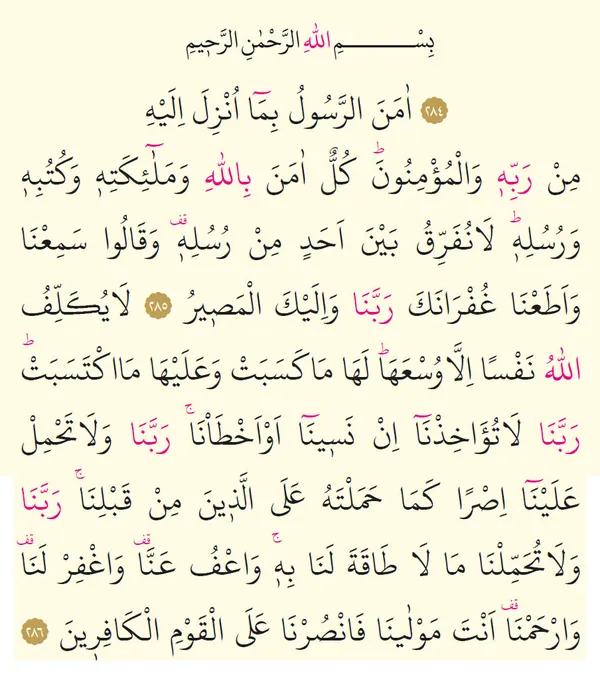 بِسْــــــــــمِ اللّٰهِ الرَّحْمٰنِ الرَّحٖيمِ
﴿٢٨٤﴾ اٰمَنَ الرَّسُولُ بِمَٓا اُنْزِلَ اِلَيْهِ
مِنْ رَبِّهٖ وَالْمُؤْمِنُونَؕ كُلٌّ اٰمَنَ بِاللّٰهِ وَمَلٰٓئِكَتِهٖ وَكُتُبِهٖ
وَرُسُلِهٖؕ لَانُفَرِّقُ بَيْنَ اَحَدٍ مِنْ رُسُلِهٖࣞ وَقَالُوا سَمِعْنَا
وَاَطَعْنَا غُفْرَانَكَ رَبَّنَا وَاِلَيْكَ الْمَصٖيرُ ﴿٢٨٥﴾ لَايُكَلِّفُ
اللّٰهُ نَفْسًا اِلَّا وُسْعَهَاؕ لَهَا مَاكَسَبَتْ وَعَلَيْهَا مَااكْتَسَبَتْؕ
رَبَّنَا لَاتُؤَاخِذْنَٓا اِنْ نَسٖينَٓا اَوْاَخْطَأْنَاۚ رَبَّنَا وَلَاتَحْمِلْ
عَلَيْنَٓا اِصْرًا كَمَا حَمَلْتَهُ عَلَى الَّذٖينَ مِنْ قَبْلِنَاۚ رَبَّنَا
وَلَاتُحَمِّلْنَا مَا لَا طَاقَةَ لَنَا بِهٖۚ وَاعْفُ عَنَّاࣞ وَاغْفِرْ لَنَاࣞ
وَارْحَمْنَاࣞ اَنْتَ مَوْلٰينَا فَانْصُرْنَا عَلَى الْقَوْمِ الْكَافِرٖينَ ﴿٢٨٦﴾